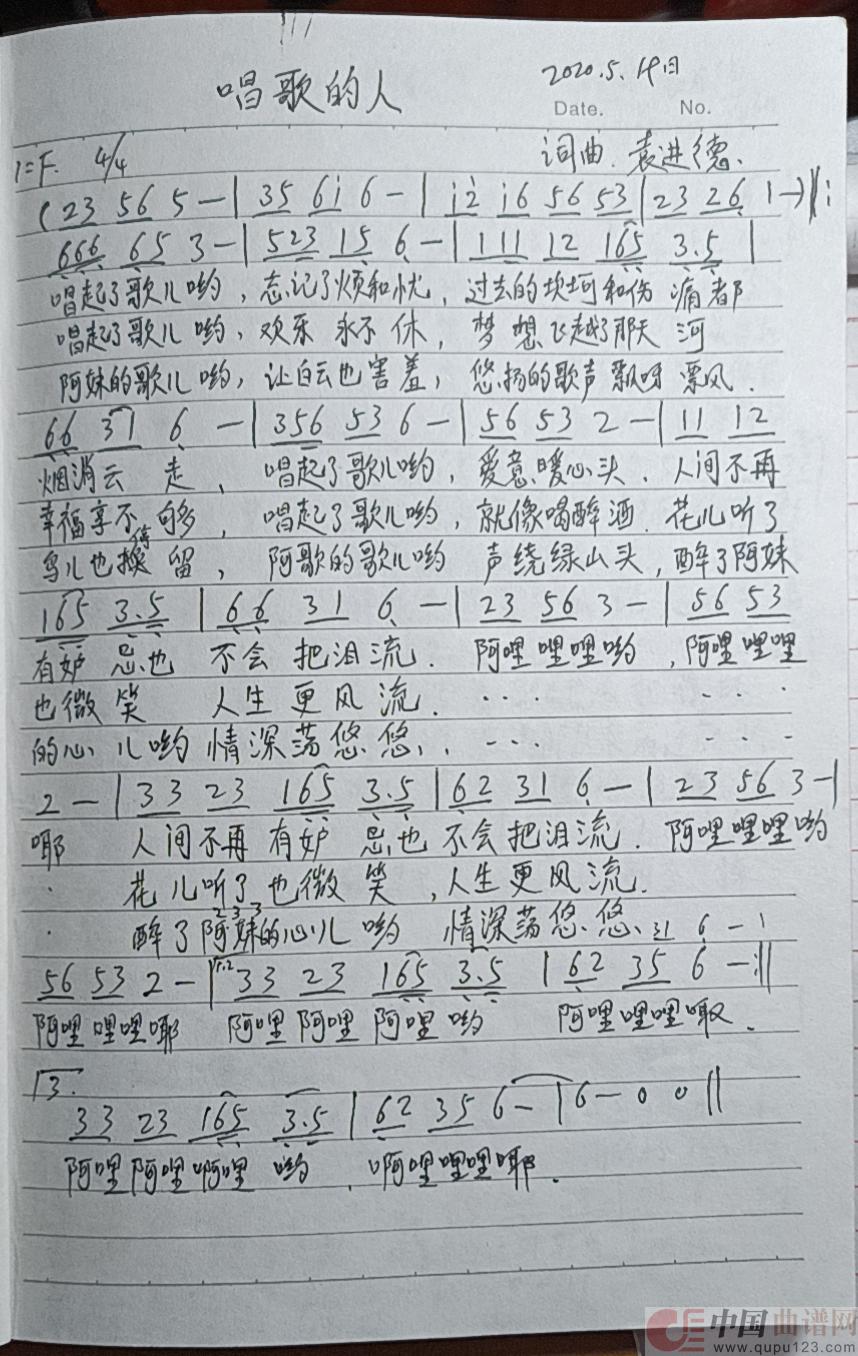 唱歌的人
2020.5.19日
Date. No.
1=F. 4/4
词曲.袁进德.
(23 56 5 —| 35 6i 6 —| i2 i6 56 53|23 26 1 —)‖:
666 65 3 —| 523 15 6 —| 111 12 165 3.5 |
唱起了歌儿哟,忘记了烦和忧,过去的坎坷和伤 痛都
唱起了歌儿哟,欢乐 永不 休,梦想飞越了那天 河
阿妹的歌儿哟,让白云也害羞,悠扬的歌声飘呀 票风.
66 31 6 —| 356 53 6 —| 56 53 2 —| 11 12
烟消云 走, 唱起了歌儿哟,爱意暖心头.人间不再
幸福享不够, 唱起了歌儿哟,就像喝醉酒.花儿听了
鸟儿也 留, 阿歌的歌儿哟 声绕绿山头,醉了阿妹
165 3.5 | 66 31 6 —| 23 56 3 —| 56 53
有妒 忌也 不会 把泪流. 阿哩哩哩哟,阿哩哩哩
也微 笑 人生 更风 流. ... ...
的心 儿哟 情深荡悠悠,. ... ...
2 —| 33 23 165 3.5|62 31 6 —| 23 56 3 —|
耶 人间不再有妒 忌也 不会把泪流.阿哩哩哩哟
. 花儿听了也微笑,人生更风流.
2 3 3
. 醉了阿妹的心儿 哟 情深荡悠悠、 31 6 — |
56 53 2 —|1.2 33 23 165 3.5 | 62 35 6 —:‖
阿哩哩哩耶 阿哩阿哩阿哩 哟 阿哩哩哩 .
3.
33 23 165 3.5 | 62 35 6 —| 6 — 0 0‖
阿哩阿哩啊哩 哟. 啊哩哩哩耶.
中国曲谱网
www.qupu123.com